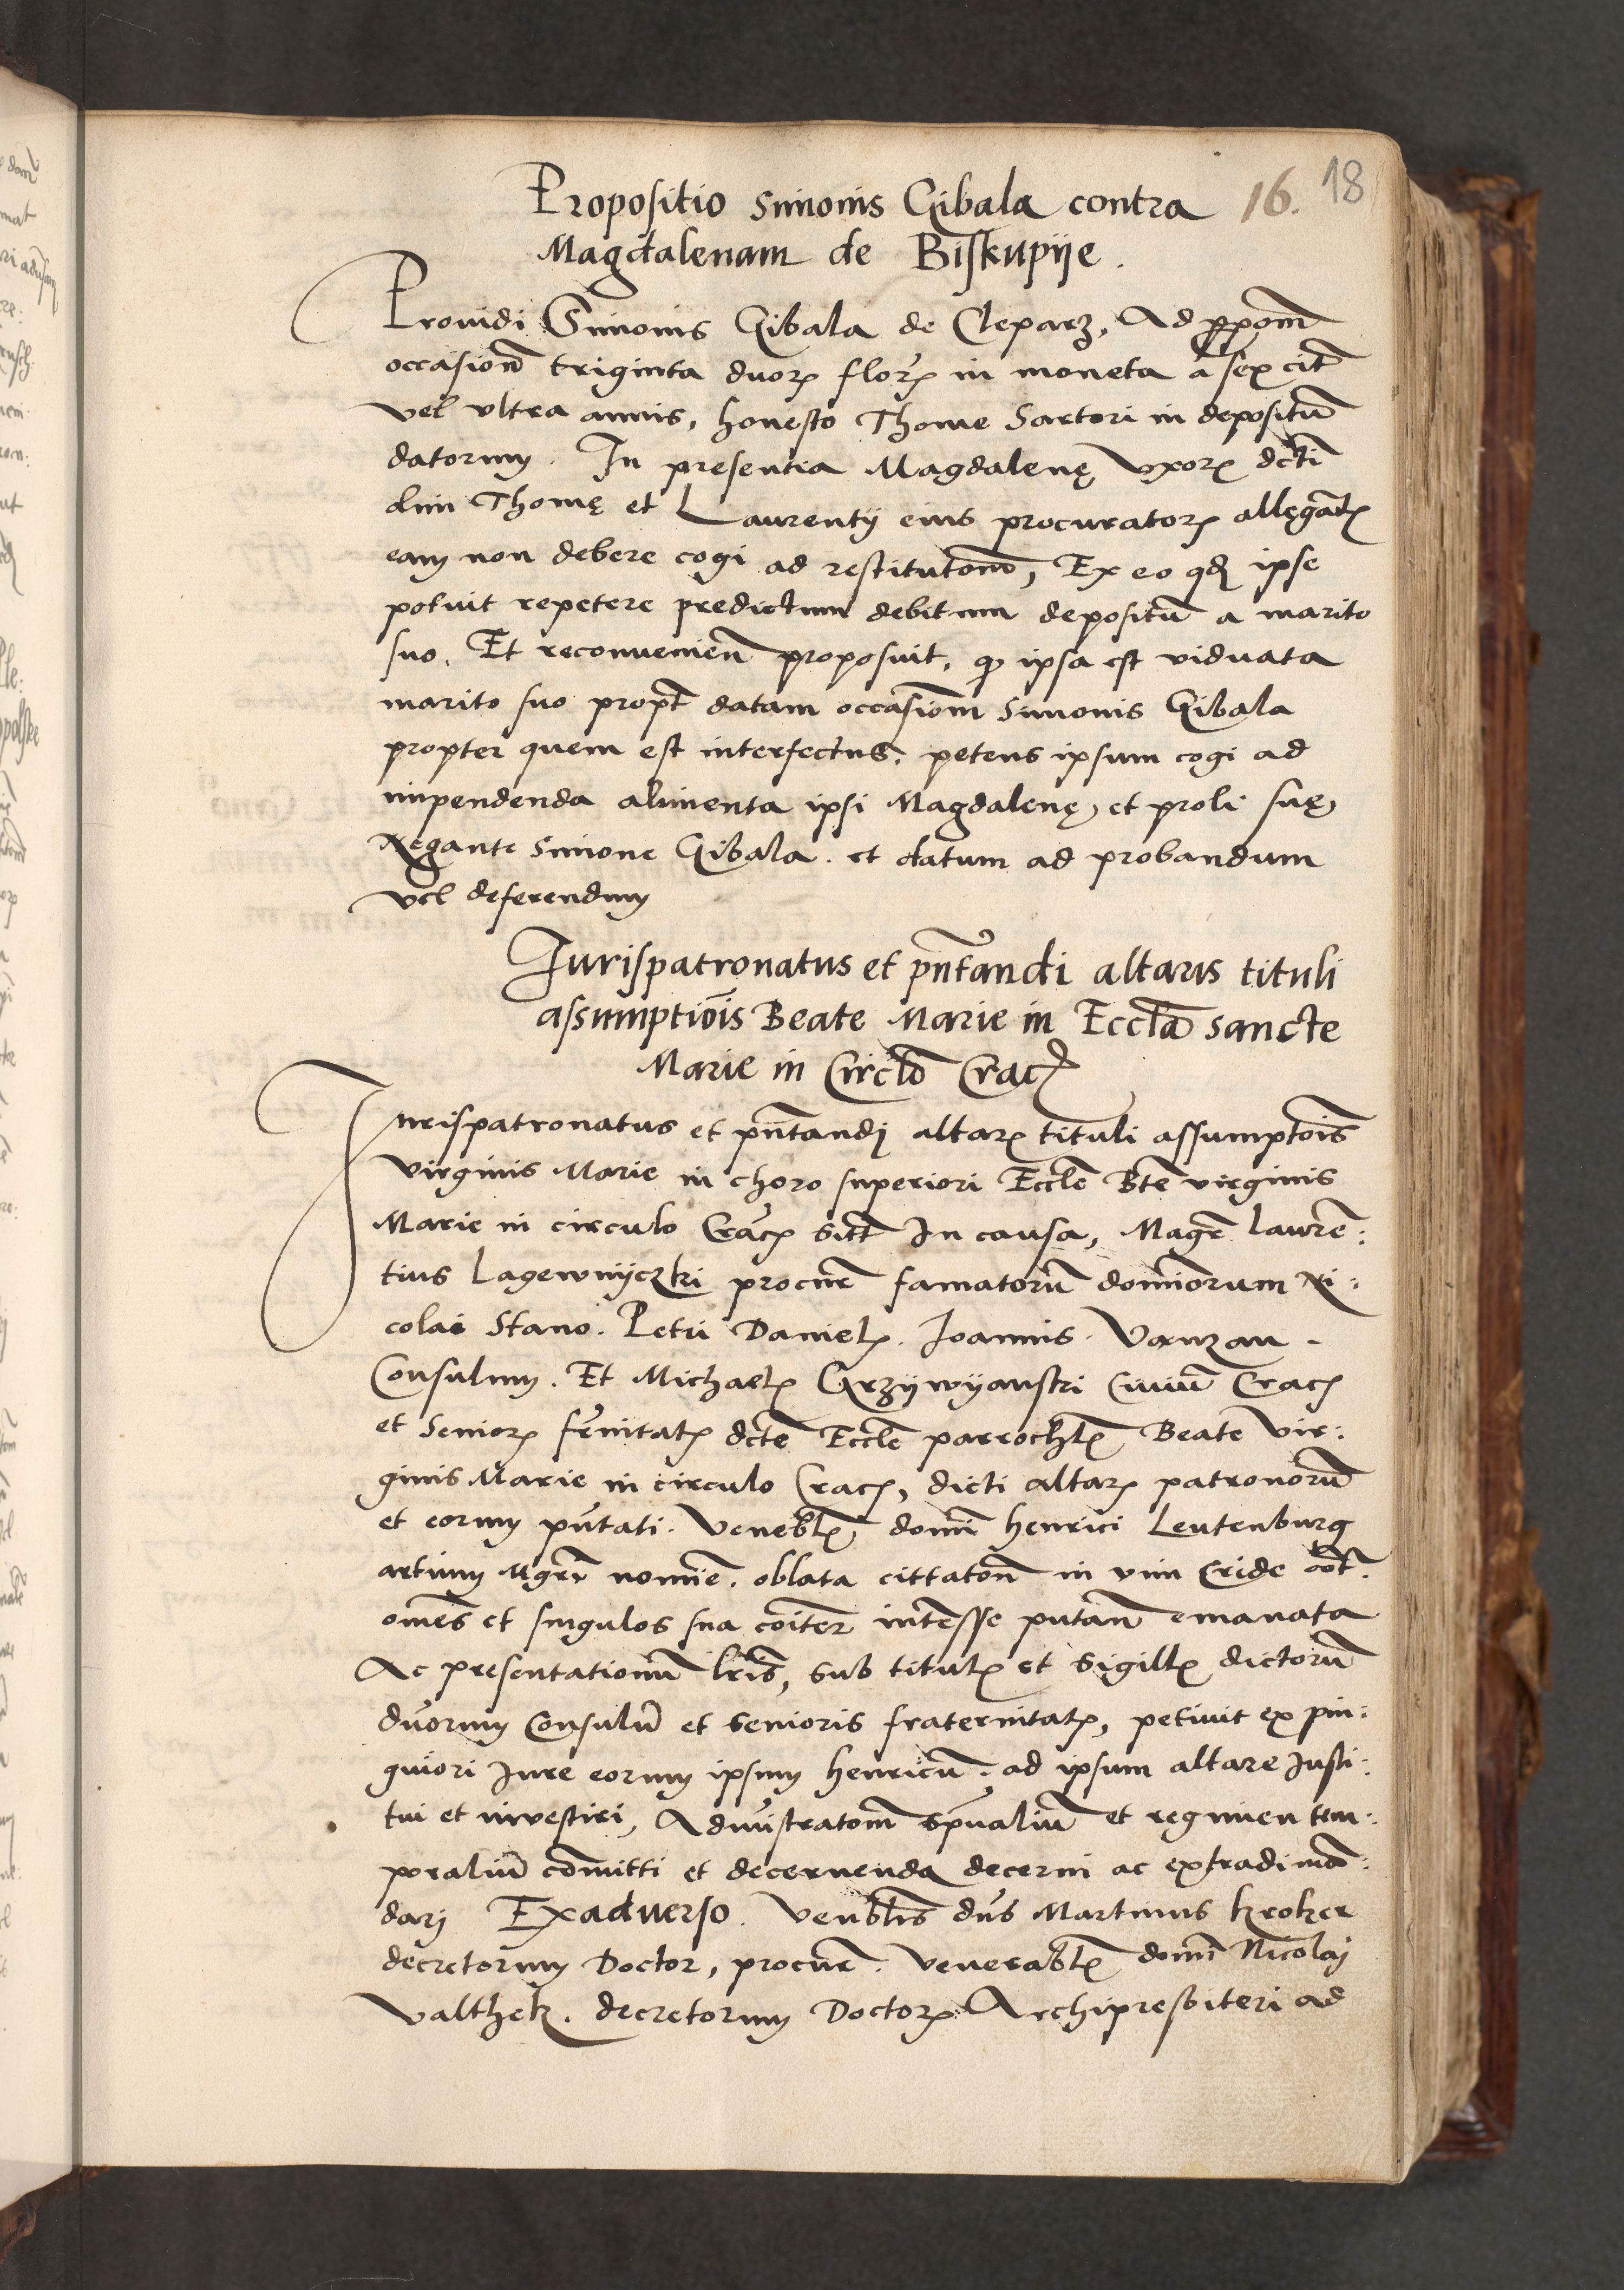 Propositio Simonis Gibala contra 16. 18
Magdalenam de Biskupije.
Prouidi Simonis Gibala de Cleparz, Ad ꝓpoñ
occasioñ triginta duorꝫ florꝫ in moneta a sex cit̃
vel vltra annis, honesto Thome Sartori in depositũ
datorum. In presentia Magdalenę vxorꝫ dcti
dni Thomę et Laurentij eius procuratorꝫ allęgatꝫ
eam non debere cogi ad restitutom̃, Ex eo qđ ipse
potuit repetere predictum debitum depositũ a marito
suo. Et reconuenien̄ proposuit, ꝙ ipsa est viduata
marito suo propt̃ datam occasiom̃ Simonis Gibala
propter quem est interfectus, petens ipsum cogi ad
impendenda alimenta ipsi Magdalenę, et proli suę,
Negante Simone Gibala. et datum ad probandum
vel deferendum
Jurispatronatus et pñtandi altaris tituli
assumptiõis Beate Marie in Ecclã sancte
Marie in Circlõ Cracꝫ
Jurispatronatus et pñtandj altarꝫ tituli assumptõis
virginis Marie in choro superiori Eccle Bte virginis
Marie in circulo Cracꝫ sitt̃ In causa, Magr̃ Lauren:
tius Lagewnijczki procur̃ famatorũ dominorum Ni:
colai Stano. Petri Danielꝫ. Joannis. Vanzan.
Consulum. Et Michaelꝫ Grzijwijanski Ciuiũ Cracꝫ
et Seniorꝫ fr̃nitatꝫ dcte Eccle parrochlꝫ Beate vir:
ginis Marie in circulo Cracꝫ, dicti altarꝫ patronorũ
et eorum pñtati. Venebłꝫ domi henrici Leutenburg
artium Mgrĩ nomie. oblata cittatoñ in vim Cride con̄t.
om̃es et singulos sua cõiter intẽsse putañ emanata
Ac presentationũ lr̃is, sub titulꝫ et sigillꝫ dictorũ
duorum Consulũ et senioris fraternitatꝫ, petiuit ex pin:
guiori Jure eorum ipsum henricũ. ad ipsum altare Insti:
tui et inuestiri, Admistratom̃ spũalium et regimen tem:
poraliũ cõmitti et decernenda decerni ac extradi man:
darj Exaduerso. Venblis dns Martinus kroker
decretorum Doctor, procur̃. venerabłꝫ domi Nicolaj
Valthek. decretorum Doctorꝫ Archipresbiteri ad